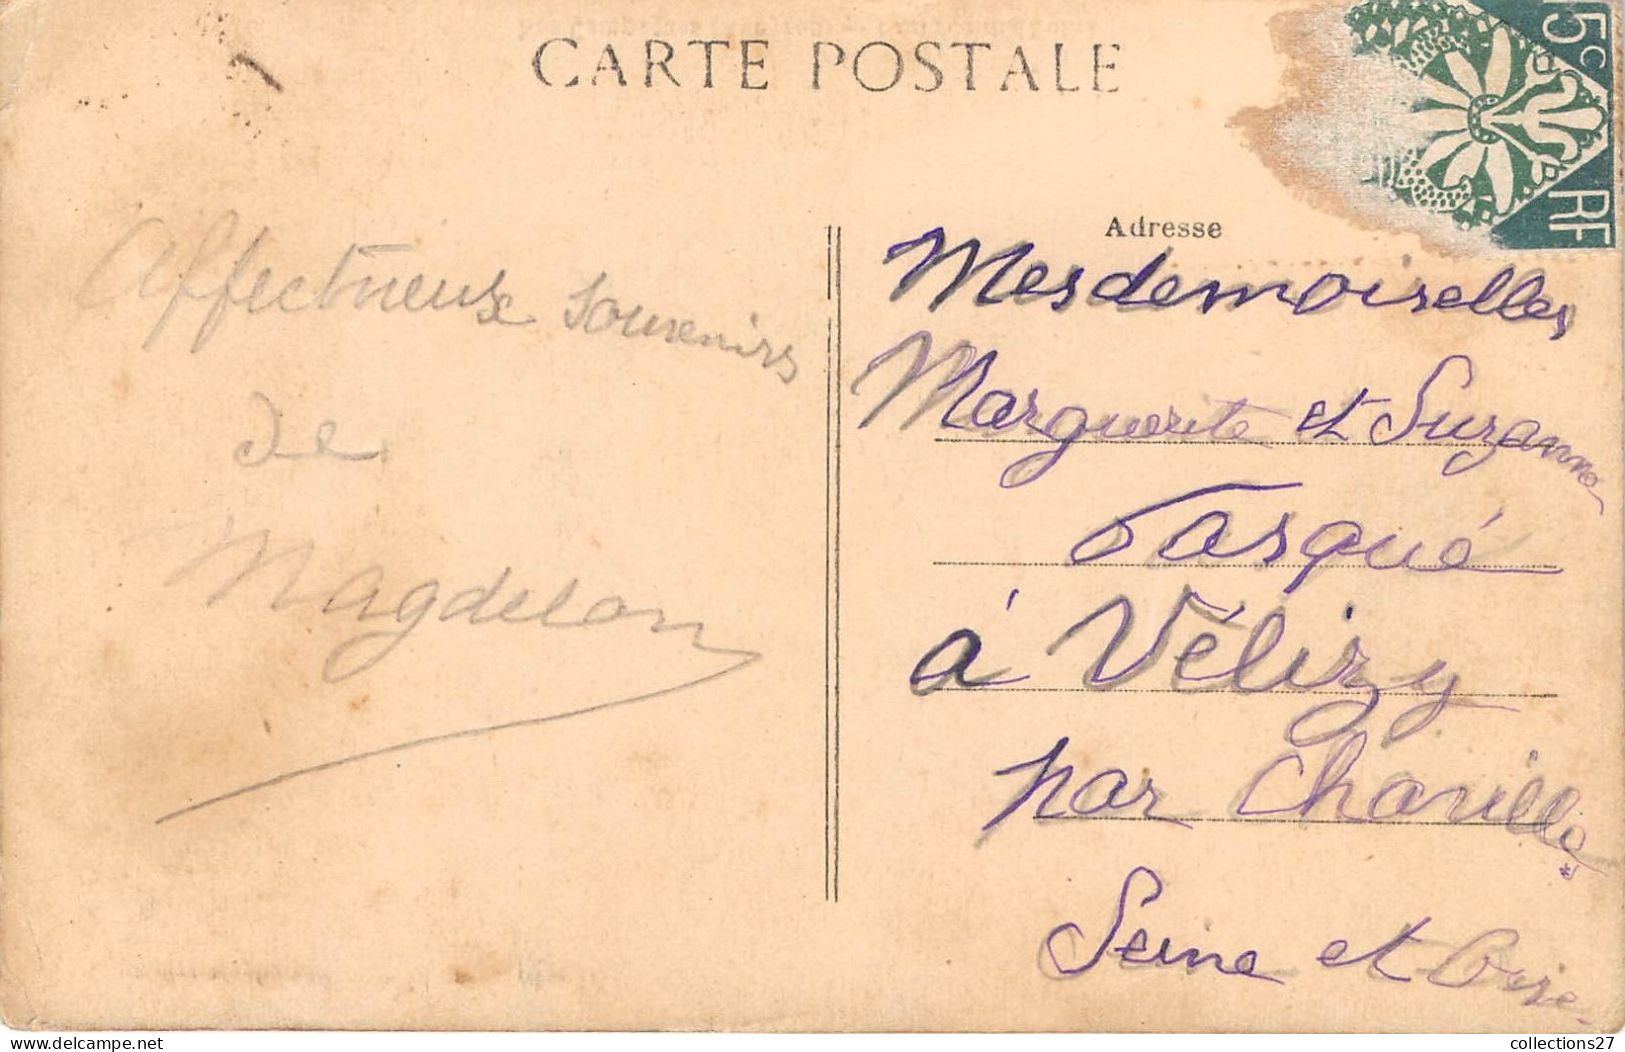 CARTE POSTALE
5c
RF
Adresse
Affectueux souvenirs
de
Magdelon
Mesdemoiselles
Marguerite et Suzanne
Fasqué
à Vélizy
par Chaville
Seine et Oise
collections27